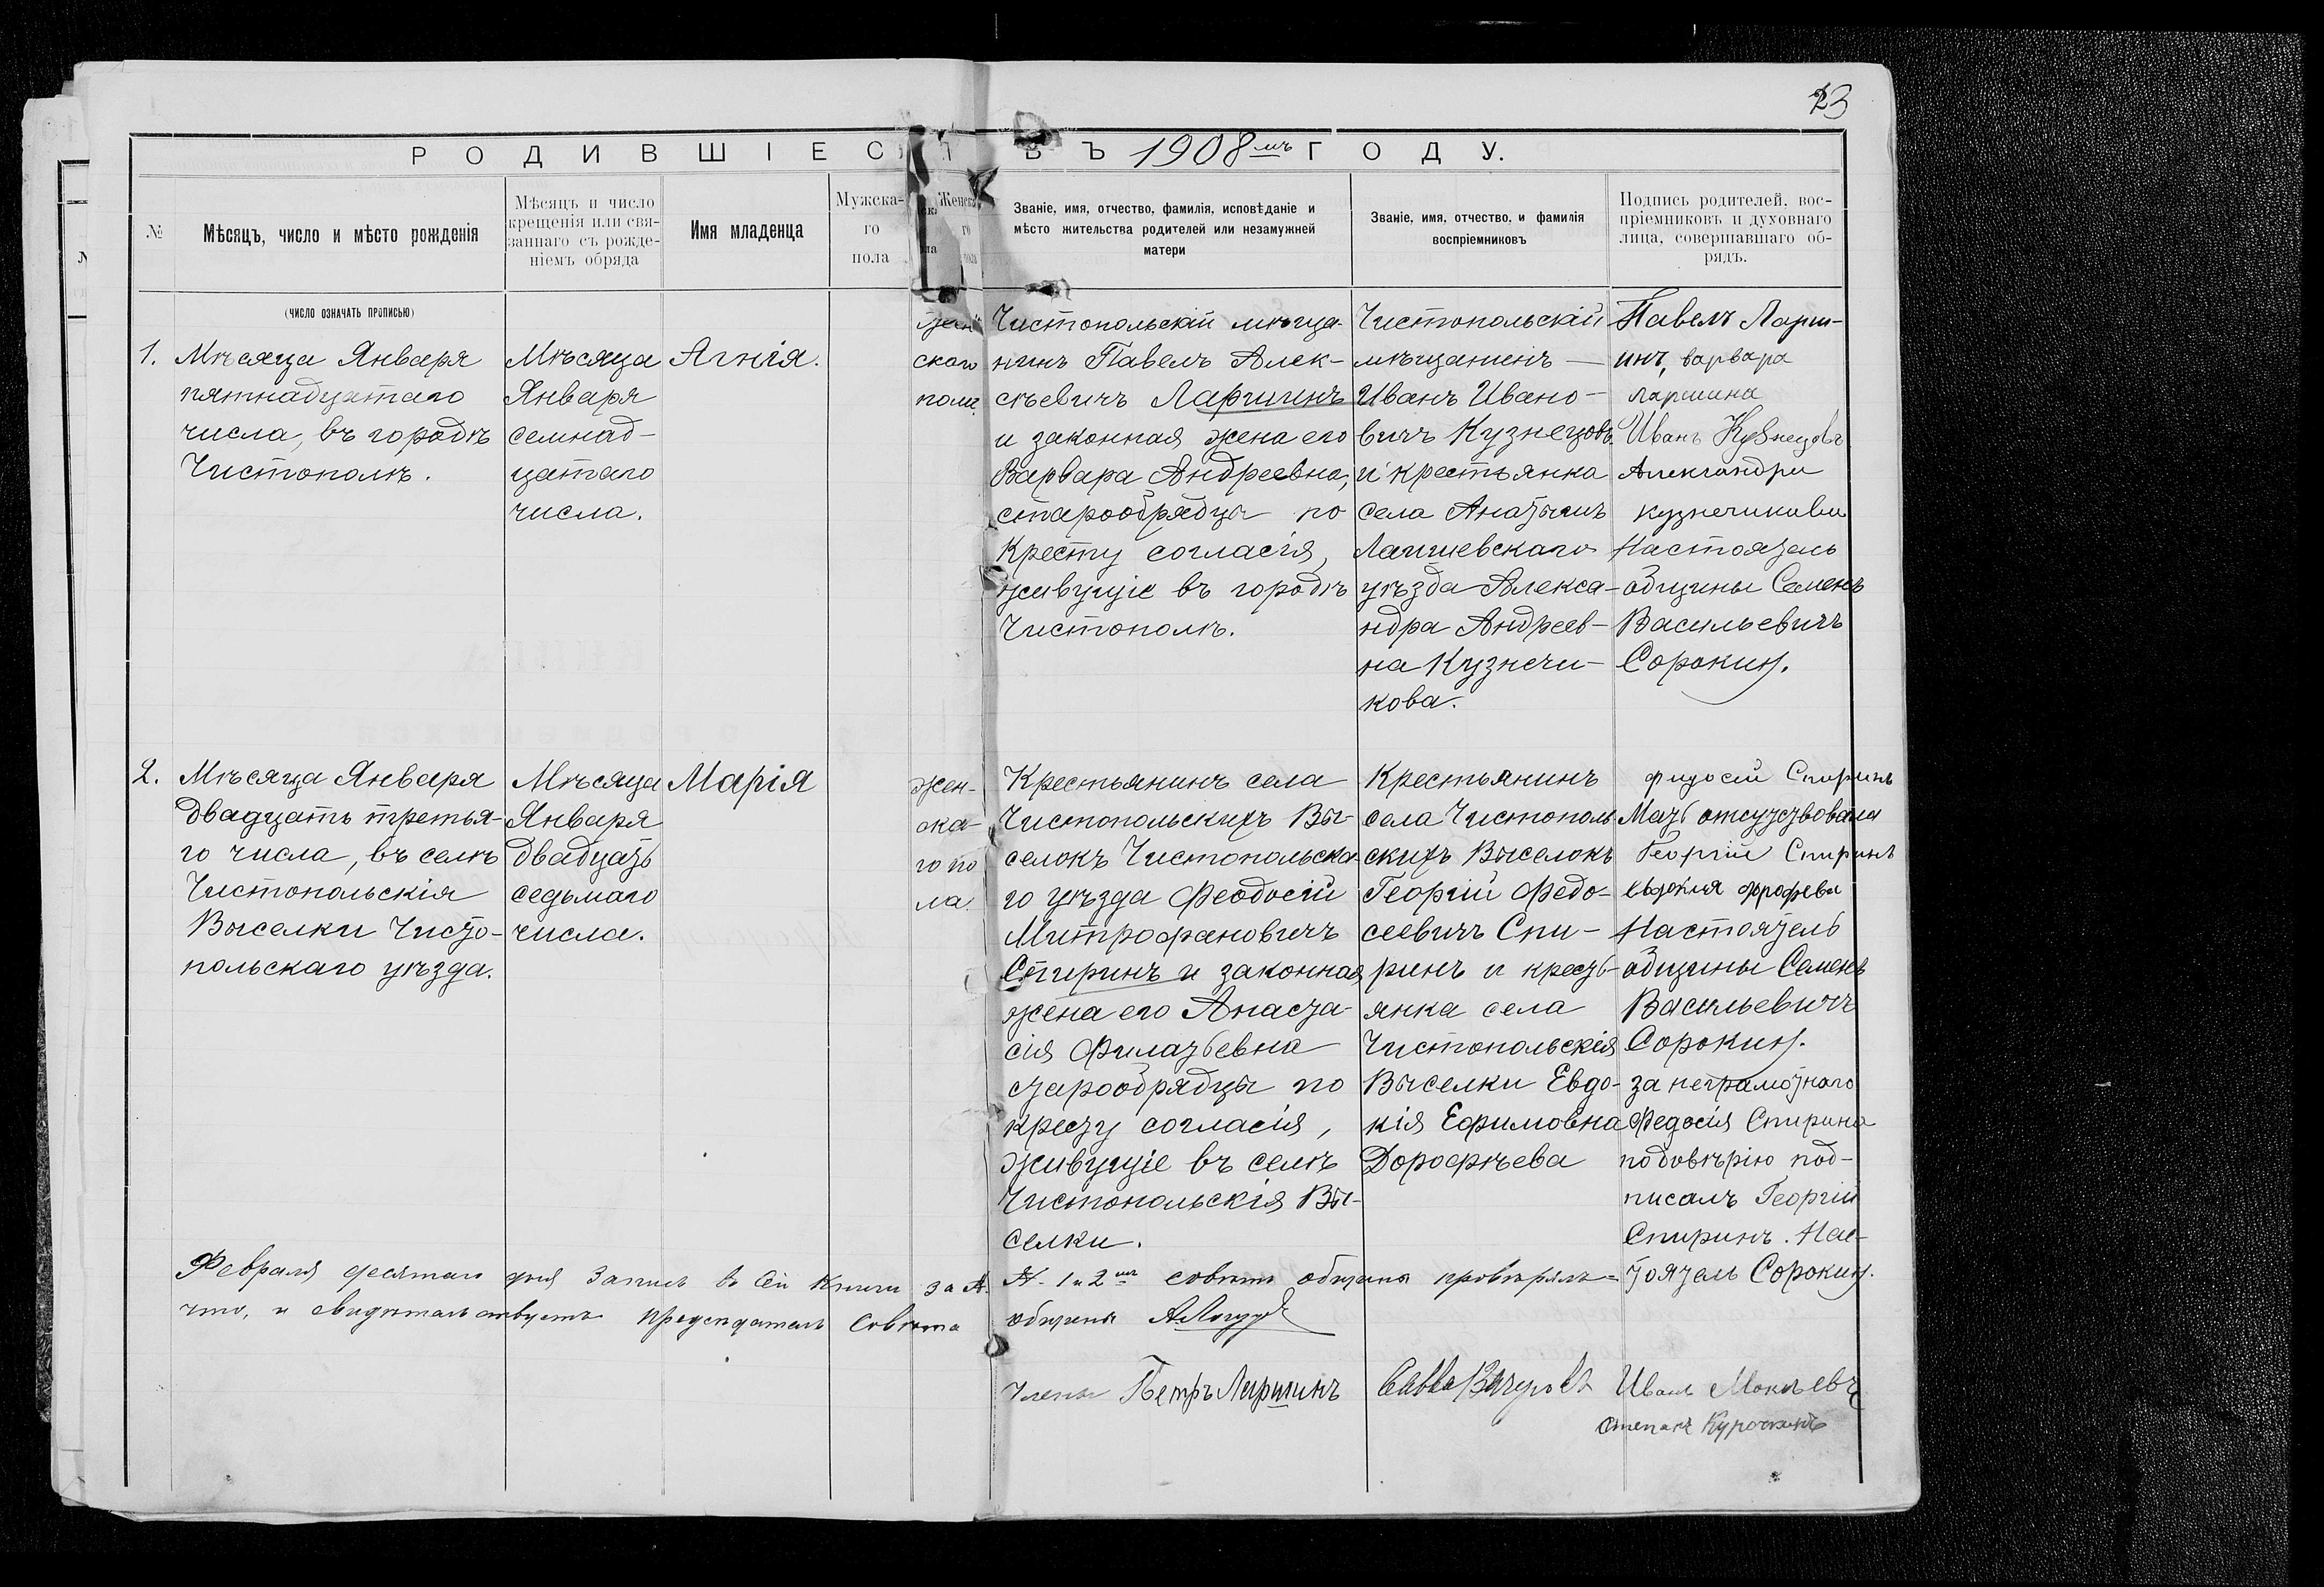 23
РОДИВШІЕСЯ ВЪ 1908 мъ ГОДУ.
№
Мѣсяцъ, число и мѣсто рожденія
Мѣсяцъ и число
крещенія или свя-
заннаго съ рожде-
ніемъ обряда
Имя младенца
Мужска-
го
пола
Женск
го
пола
Званіе, имя, отчество, фамилія, исповѣданіе и
мѣсто жительства родителей или незамужней
матери
Званіе, имя, отчество, и фамилія
воспріемниковъ
Подпись родителей, вос-
пріемниковъ и духовнаго
лица, совершавшаго об-
рядъ.
(число означать прописью)
1.
Мѣсяца Января
пятнадцатаго
числа, въ городѣ
Чистополѣ.
Мѣсяца
Января
семнад-
цатаго
числа.
Агнія.
жен
скаго
пола
Чистопольскій мѣща-
нинъ Павелъ Алек-
сѣевичъ Ларшинъ
и законная жена его
Варвара Андреевна,
старообрядцы по
Кресту согласія,
живущіе въ городѣ
Чистополѣ.
Чистопольскій
мѣщанинъ —
Иванъ Ивано-
вичъ Кузнецовъ
и крестьянка
села Анатышъ
Лаишевскаго
уѣзда Алекса-
ндра Андреев-
на Кузнечи-
кова.
Павелъ Ларш-
инъ, варвара
ларшина
Иванъ Кузнецовъ
Александра
кузнечикова
Настоятель
общины Семенъ
Васильевичъ
Сорокин.
2.
Мѣсяца Января
двадцать третья-
го числа, въ селѣ
Чистопольскія
Выселки Чисто-
польскаго уѣзда.
Мѣсяца
Января
двадцать
седьмаго
числа.
Марія
жен-
ска-
го по
ла.
Крестьянинъ села
Чистопольскихъ Вы-
селокъ Чистопольска-
го уѣзда Феодосій
Митрофановичъ
Спиринъ и законная
жена его Анаста-
сія Филатьевна
старообрядцы по
кресту согласія,
живущіе въ селѣ
Чистопольскія Вы-
селки.
Крестьянинъ
села Чистополь
скихъ Выселокъ
Георгій Федо-
сеевичъ Спи-
ринъ и кресть-
янка села
Чистопольскія
Выселки Евдо-
кія Ефимовна
Дорофѣева
Спиринъ
Мать отсутствовала
Георгій Спиринъ
Настоятель
общины Семенъ
Васильевичъ
Сорокин.
за неграмотнаго
Федосія Спирина
по довѣрію под-
писалъ Георгій
Спиринъ. Нас-
тоятель Сорокин.
Февраля десятаго дня Запись въ Сей Книги за №. №. 1 и 2 мъ совѣтъ общины провѣрялъ=
что, и свидѣтельствуетъ председатель Совѣта общины
Члены Петръ Ларшинъ Савва Иванъ Мокѣевъ
Степанъ Курочкинъ